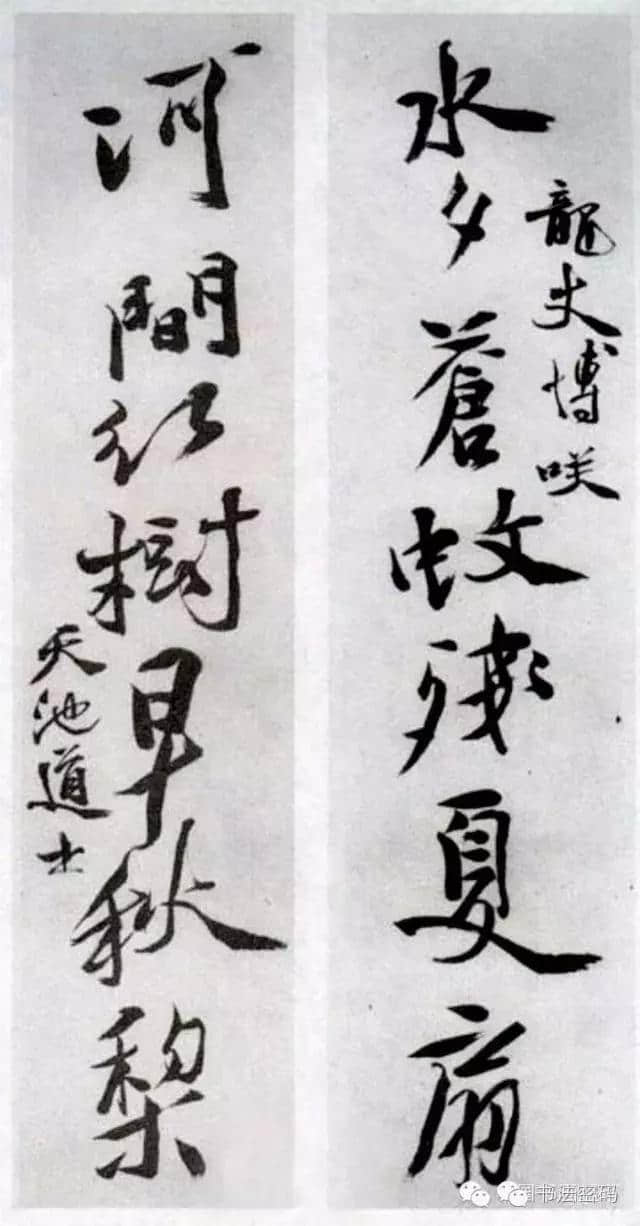 龍丈博咲
水夕蒼蚊殘夏扇
河間紅樹早秋梨
天池道士
书法密码